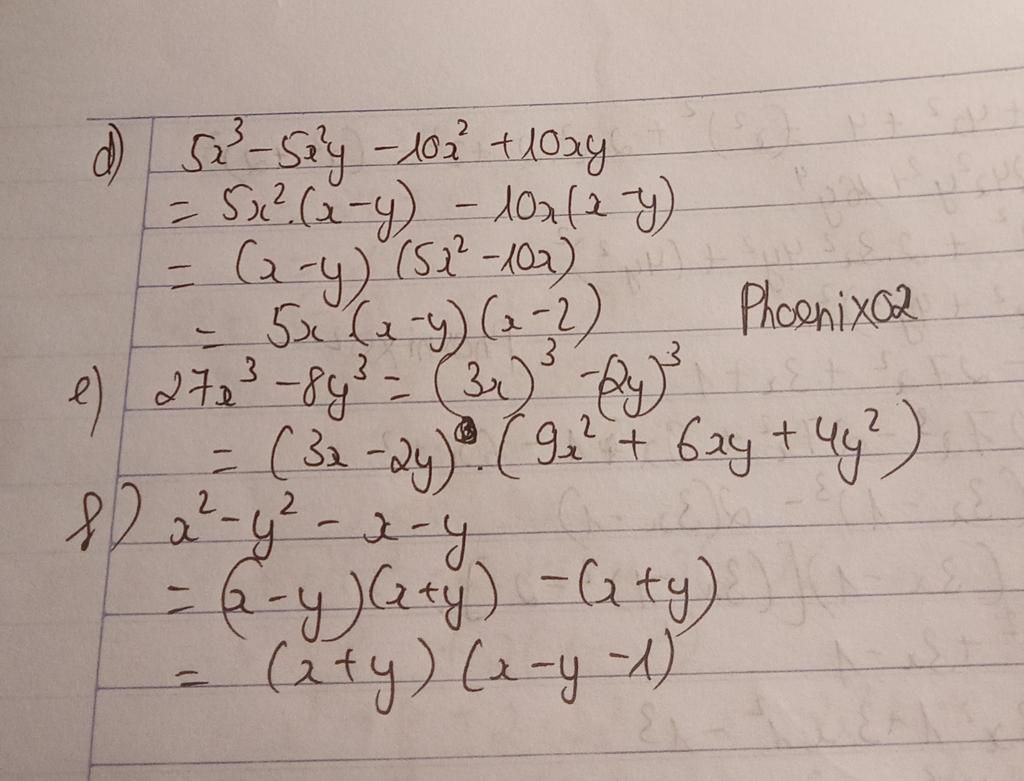 d) 5x³ - 5x²y - 10x² + 10xy
= 5x².(x-y) - 10x(x-y)
= (x-y) (5x² - 10x)
= 5x (x-y) (x-2)
Phoenix02
e) 27x³ - 8y³ = (3x)³ - (2y)³
= (3x - 2y) . (9x² + 6xy + 4y²)
f) x² - y² - x - y
= (x-y)(x+y) - (x+y)
= (x+y) (x-y-1)